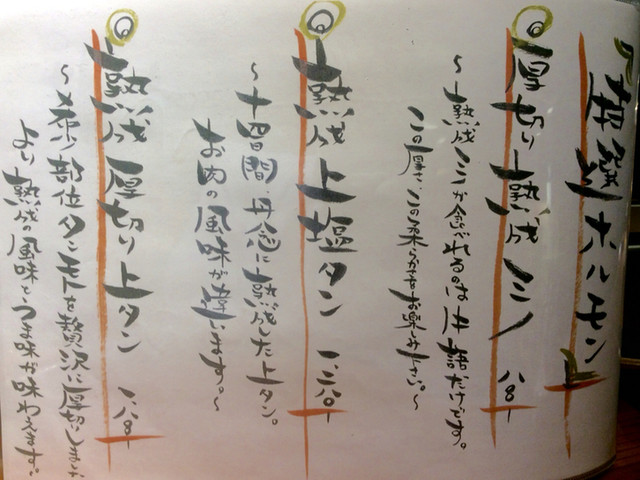 「特選ホルモン」
◎厚切り熟成ミノ 八八〇
～熟成ミノが食べれるのは牛語だけです。
この厚さ、この柔らかさをお楽しみ下さい。～
◎熟成上塩タン 一、二八〇
～十四日間、丹念に熟成した上タン。
お肉の風味が違います。～
◎熟成厚切り上タン 一、八〇
～希少部位タンモトを贅沢に厚切りします
より熟成の風味とうま味が味わえます。